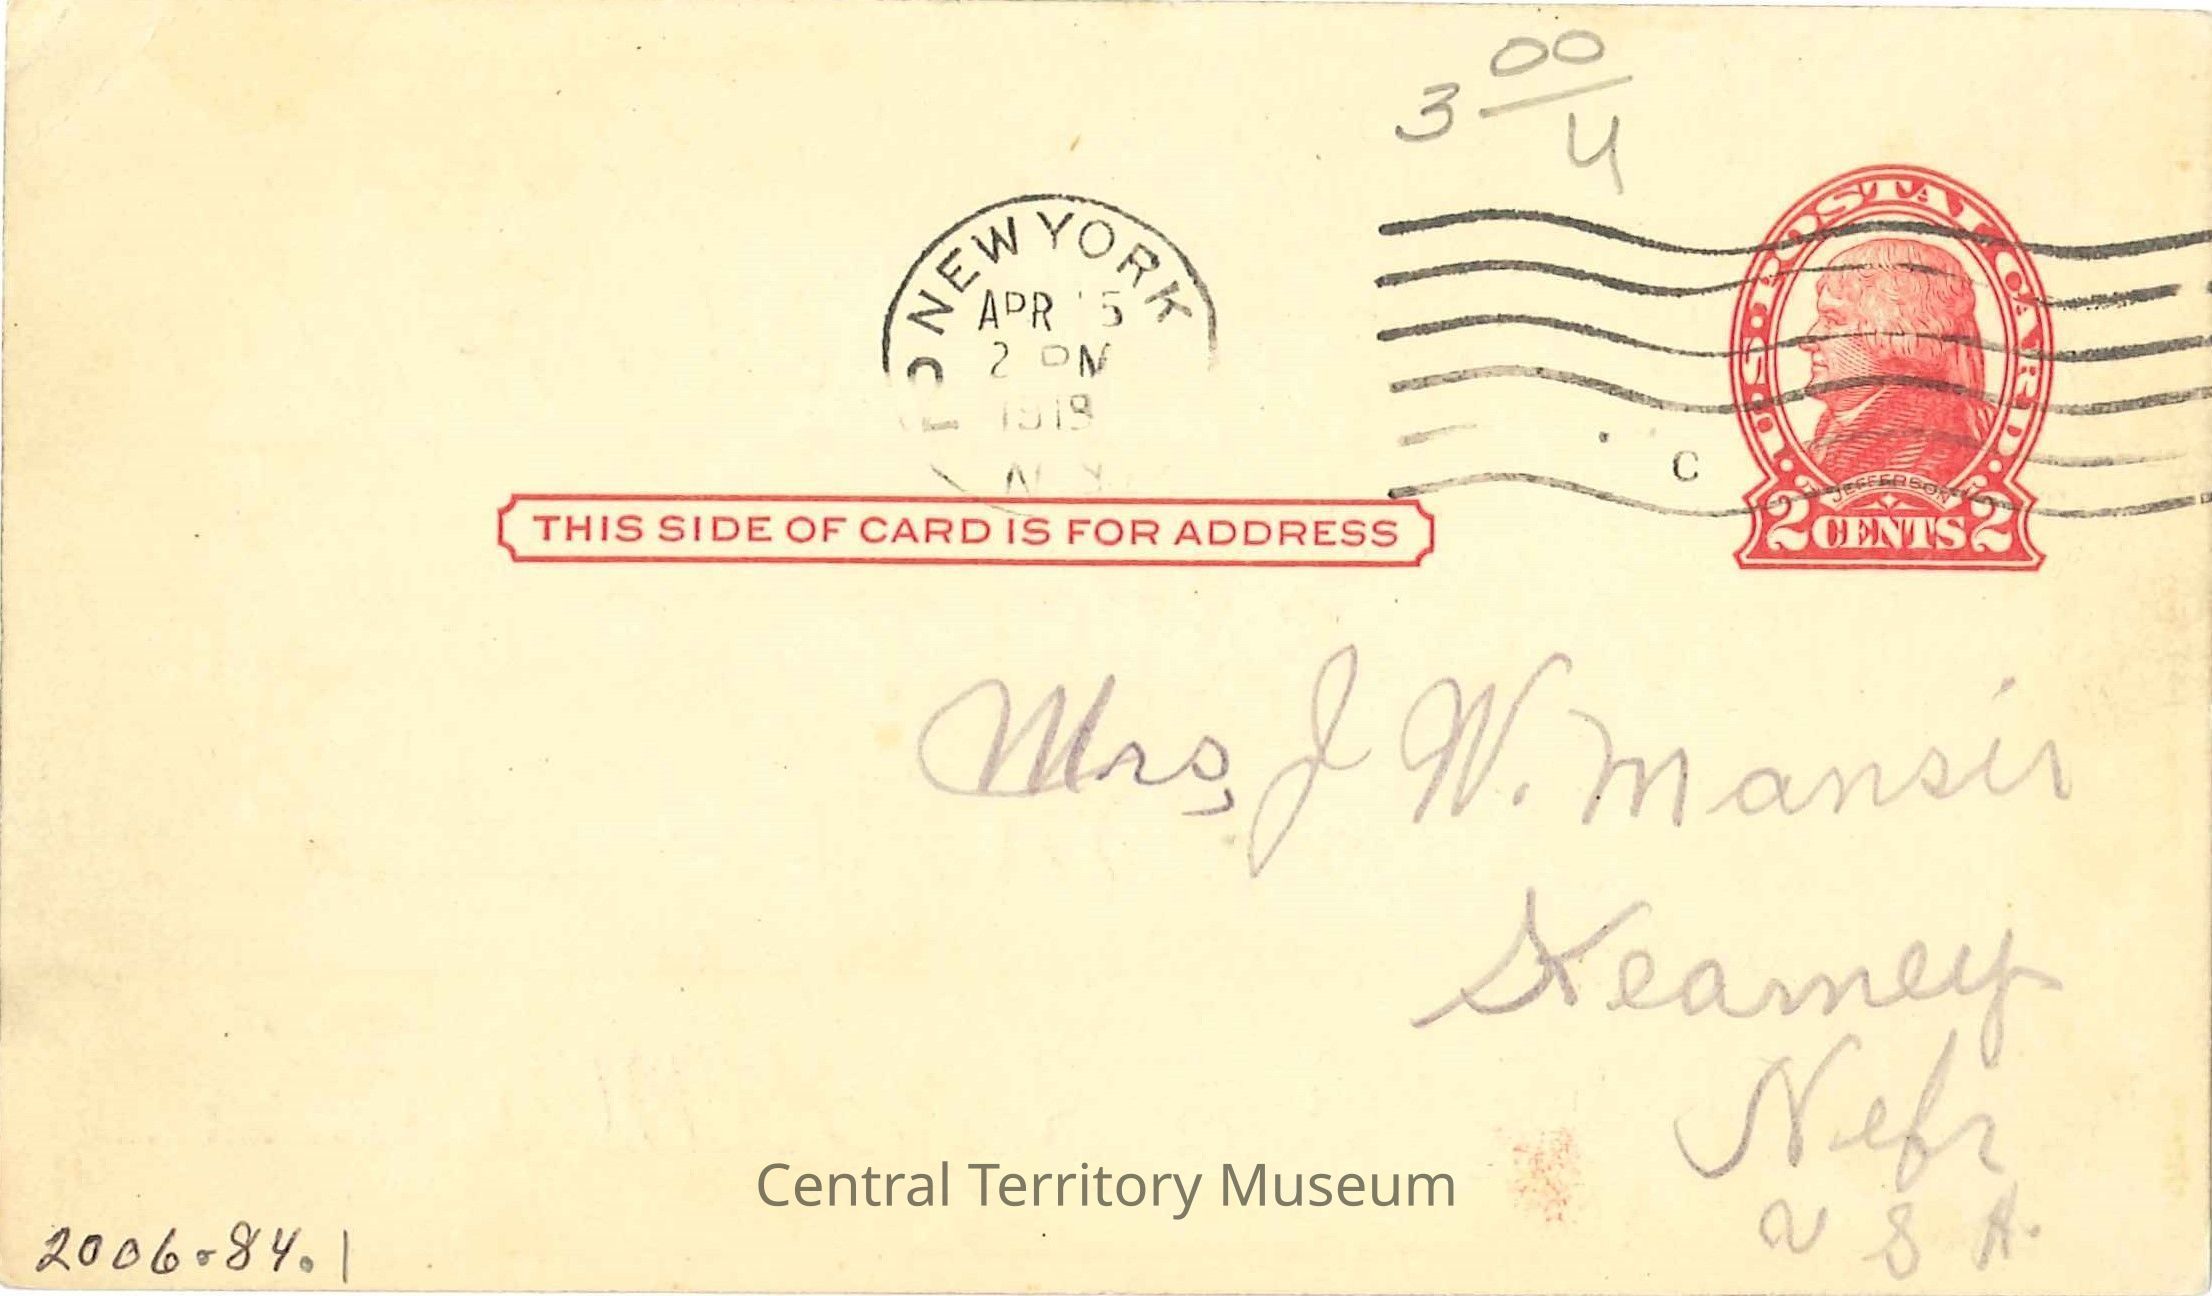 3 00/4
NEW YORK
APR 5
2 PM
1918
N.Y.
C
U.S. POSTAL CARD.
JEFFERSON
2 CENTS 2
THIS SIDE OF CARD IS FOR ADDRESS
Mrs, J W. Mansir
Kearney
Nebr
U S A.
Central Territory Museum
2006-84.1